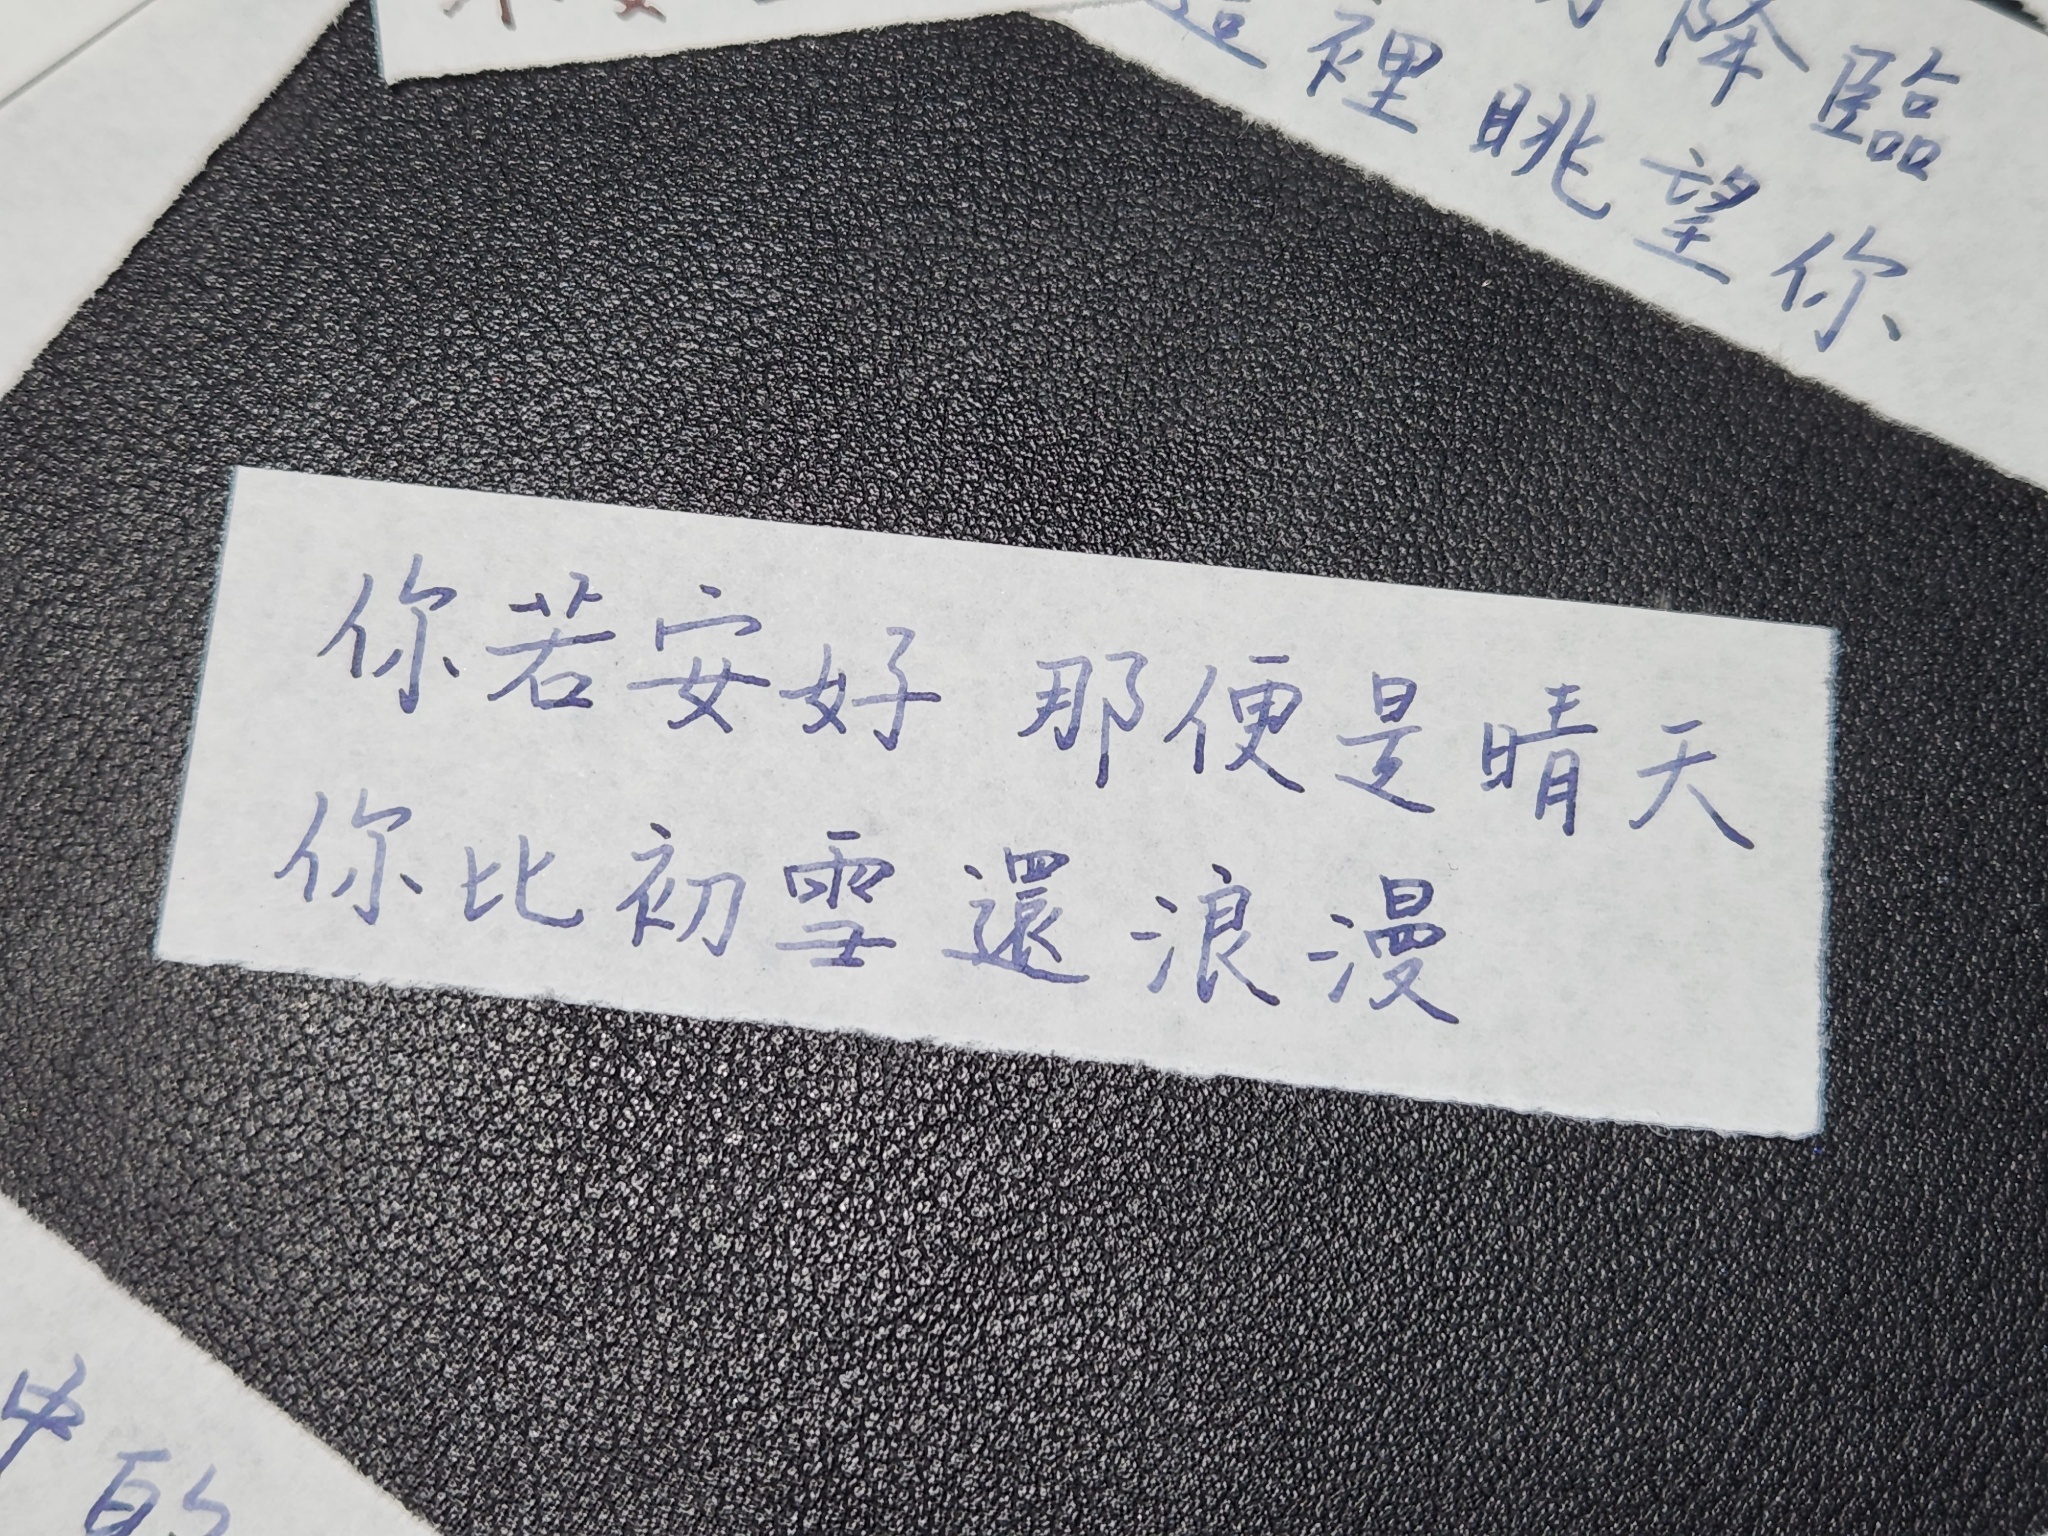 降臨
這裡眺望你
你若安好 那便是晴天
你比初雪還浪漫
的